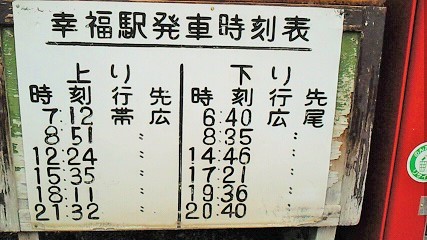 幸福駅発車時刻表
上り 下り
時刻 行先 時刻 行先
7:12 帯広 6:40 広尾
8:51 〃 8:35 〃
12:24 〃 14:46 〃
15:35 〃 17:21 〃
18:11 〃 19:36 〃
21:32 〃 20:40 〃